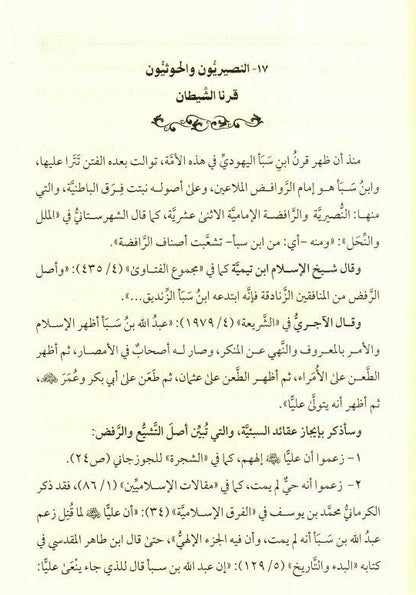 ١٧- النصيريُّون والحوثيُّون
قرنا الشَّيطان
منذ أن ظهر قرنُ ابنِ سَبَأ اليهوديِّ في هذه الأمَّة، توالت بعده الفتن تَتْرا عليها،
وابنُ سَبَأ هو إمام الرَّوافض الملاعين، وعلىٰ أصولـه نبتت فِرَق الباطنيَّة، والتي
منهـا: النُّصيريَّة والرَّافضة الإماميَّة الاثنىٰ عشريَّة، كما قال الشهرستانيُّ في «الملل
والنِّحَل»: «ومنه -أي: من ابن سبأ- تشعَّبت أصناف الرَّافضة».
وقال شيخ الإسلام ابن تيميَّة كما في «مجموع الفتاوىٰ» (٤/ ٤٣٥): «وأصل
الرَّفض من المنافقين الزَّنادقة فإنَّه ابتدعه ابنُ سَبَأ الزِّنديق...».
وقـال الآجـريُّ في «الشَّريعة» (٤/ ١٩٧٩): «عبدُ الله بنُ سَبَأ أظهر الإسلام
والأمر بالمعروف والنَّهي عن المنكر، وصار لـه أصحابٌ في الأمصار، ثم أظهر
الطَّعـن علىٰ الأُمَراء، ثم أظهـر الطَّعن علىٰ عثمان، ثم طَعَن علىٰ أبي بكر وعُمَرَ ﷺ،
ثم أظهر أنه يتولَّىٰ عليًّا».
وسأذكر بإيجاز عقائد السبئيَّة، والتي تُبيِّن أصلَ التَّشيُّع والرَّفض:
١- زعموا أن عليًّا إلههم، كما في «الشجرة» للجوزجاني (ص٢٤).
٢- زعموا أنه حيٌّ لم يمت، كما في «مقالات الإسلاميِّين» (١/ ٨٦)، فقد ذكر
الكرمانيُّ محمَّد بن يوسف في «الفرق الإسلاميَّة» (٣٤): «أن عليًّا لما قُتِل زعم
عبدُ الله بن سَبَأ أنه لم يمت، وأن فيه الجزء الإلهيَّ»، حتىٰ قال ابن طاهر المقدسي في
كتابه «البدء والتَّاريخ» (٥/ ١٢٩): «إن عبد الله بن سبأ قال للذي جاء ينْعَىٰ عليًّا: